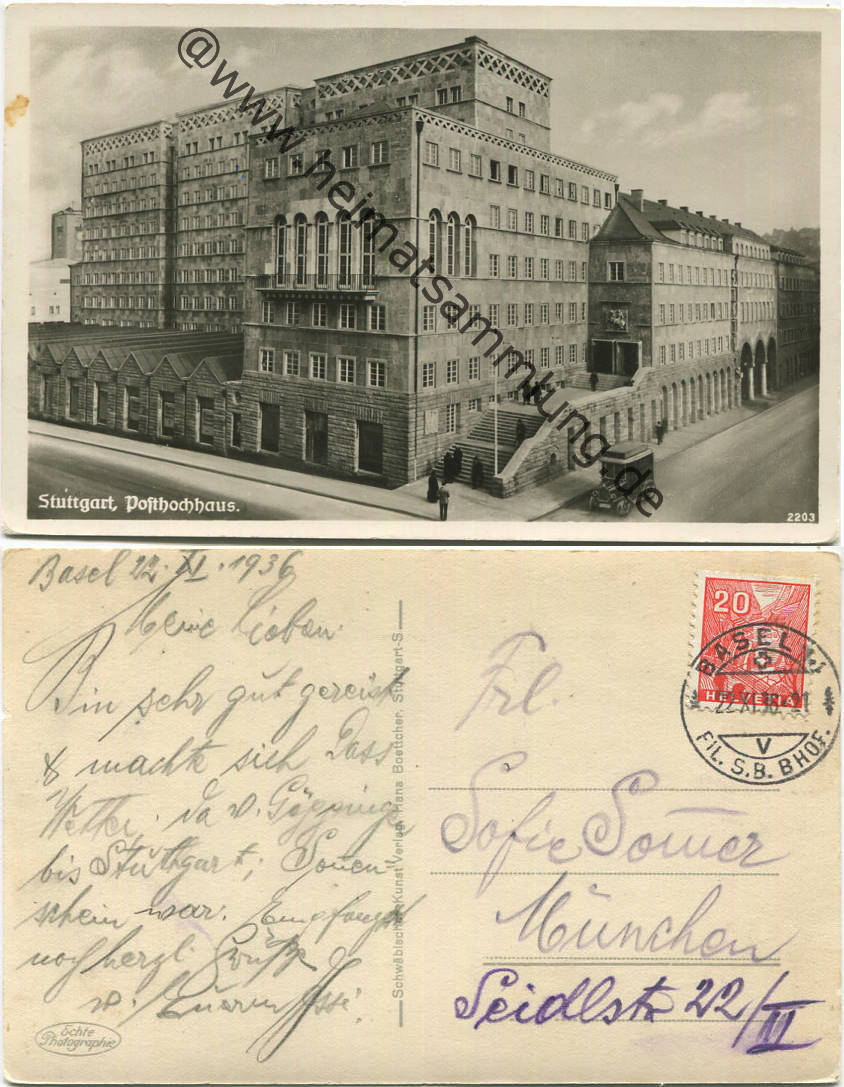 @www.heimatsammlung.de
Stuttgart, Posthochhaus.
2203
Basel 22. XI. 1936
Meine Lieben.
Bin sehr gut gereist
& machte sich Dass
Wetter. Da v. Göpping
bis Stuttgart, Sonen-
schein war. Empfangt
noch herzl. Grüße
v. Eurem
Echte
Photographie
Schwäbischer Kunst Verlag Hans Boettcher, Stuttgart-S
20
HELVETIA
BASEL
22.XI.36.-21
V
FIL. S.B. BHOF.
Frl.
Sofie Somer
München
Seidlstr. 22/II